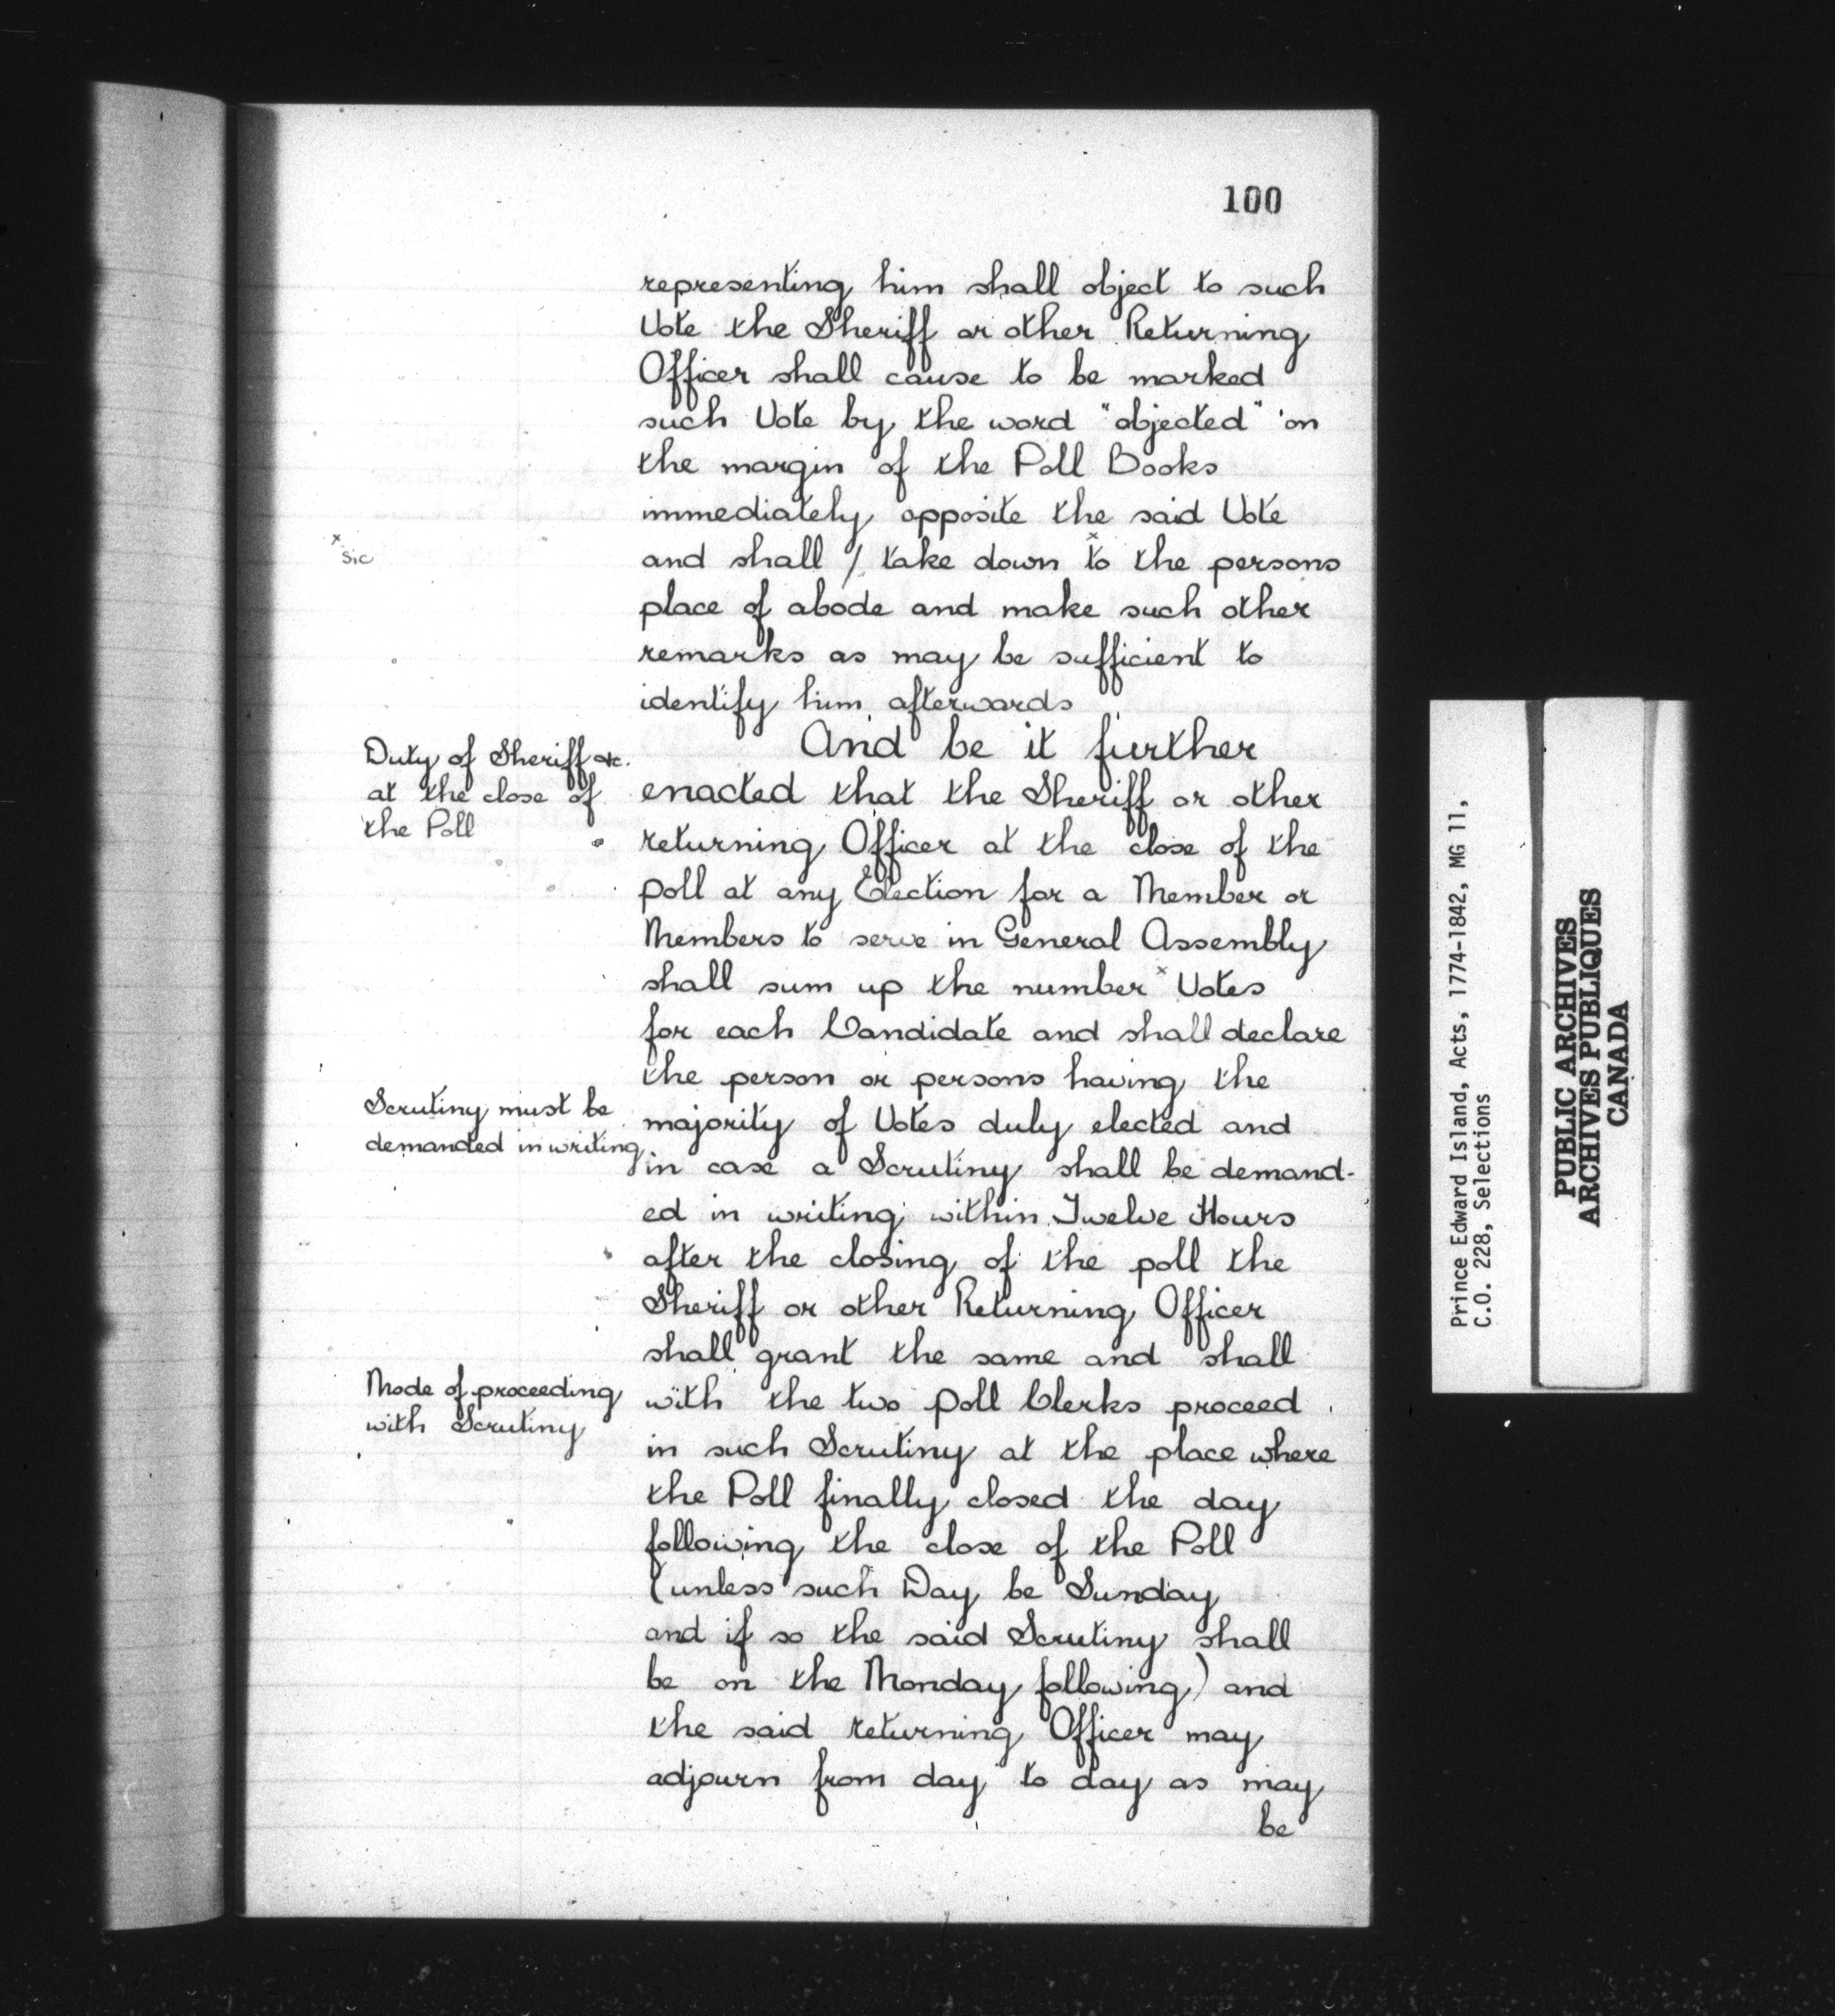 100
representing him shall object to such
Vote the Sheriff or other Returning
Officer shall cause to be marked
such Vote by the word "objected" on
the margin of the Poll Books
immediately opposite the said Vote
x
sic
and shall / take down x to the persons
place of abode and make such other
remarks as may be sufficient to
identify him afterwards
Duty of Sheriff &c.
at the close of
the Poll
And be it further
enacted that the Sheriff or other
returning Officer at the close of the
poll at any Election for a Member or
Members to serve in General Assembly
shall sum up the number x Votes
for each Candidate and shall declare
the person or persons having the
Scrutiny must be
demanded in writing
majority of Votes duly elected and
in case a Scrutiny shall be demand-
ed in writing within Twelve Hours
after the closing of the poll the
Sheriff or other Returning Officer
shall grant the same and shall
Mode of proceeding
with Scrutiny
with the two poll Clerks proceed
in such Scrutiny at the place where
the Poll finally closed the day
following the close of the Poll
(unless such Day be Sunday
and if so the said Scrutiny shall
be on the Monday following) and
the said returning Officer may
adjourn from day to day as may
be
Prince Edward Island, Acts, 1774-1842, MG 11,
C.O. 228, Selections
PUBLIC ARCHIVES
ARCHIVES PUBLIQUES
CANADA